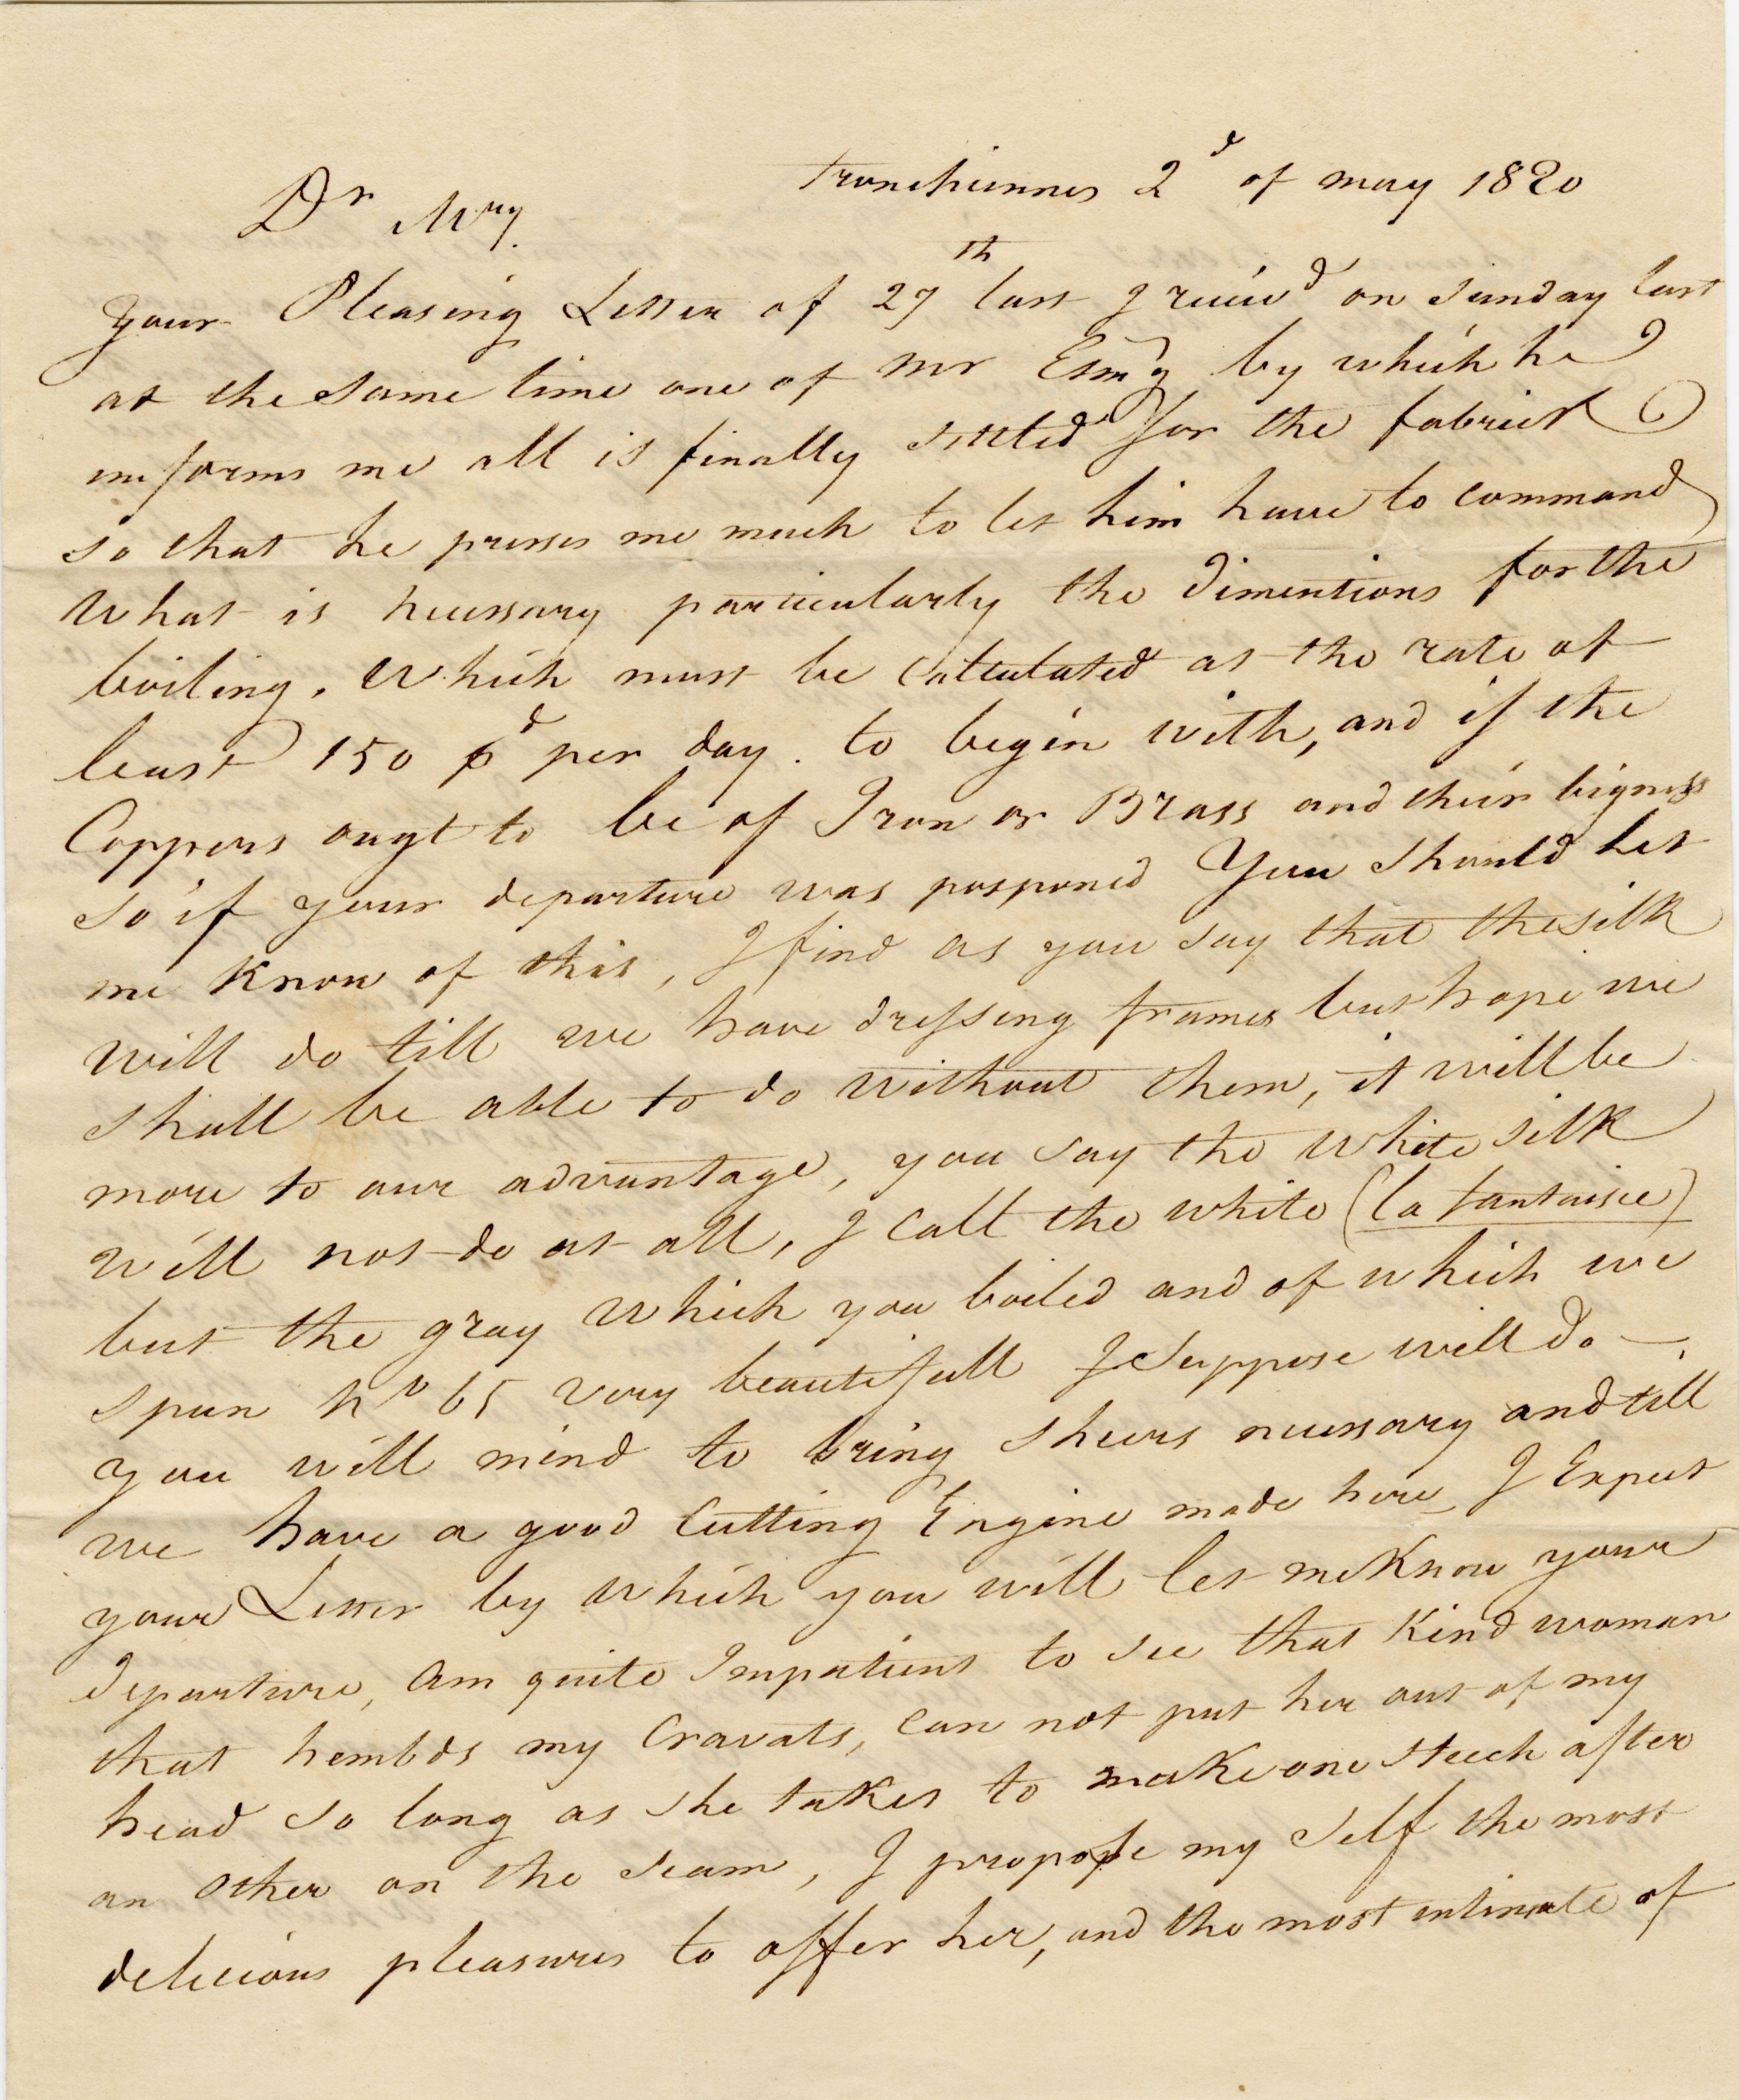 Tronchiennes 2d of may 1820
Dr Mry.
your Pleasing Letter of 27th last I reciev'd on sunday last
at the same time one of Mr Esm'g by which he
informs me all is finally settled for the fabrick
so that he presses me much to let him have to command
what is necessary particularly the dimentions for the
boiling. Which must be calculated at the rate at
least 150 pd per day. to begin with, and if the
Coppers ougt to be of Iron or Brass and their bigness
so if your departure was posponed You should let
me know of this, I find as you say that the silk
will do till we have dressing frames but hope we
shall be able to do without them, it will be
more to our advantage, you say the white silk
will not do at all, I call the white (la fantaisie)
but the gray which you boiled and of which we
spun No 65 very beautifull I suppose will do —.
you will mind to bring shears necessary and till
we have a good Cutting Engine made here I Expect
your Letter by which you will let me Know your
departure, am quite Impatient to see that Kind woman
that hembds my Cravats, can not put her out of my
head so long as she takes to make one steech after
an other on the seam, I propose my self the most
delicious pleasures to offer her, and the most intimate of